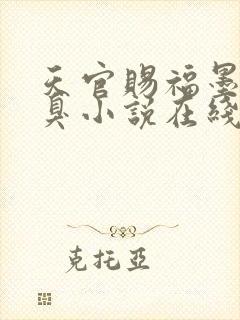 天官賜福墨
臭小説在綫
克托亞